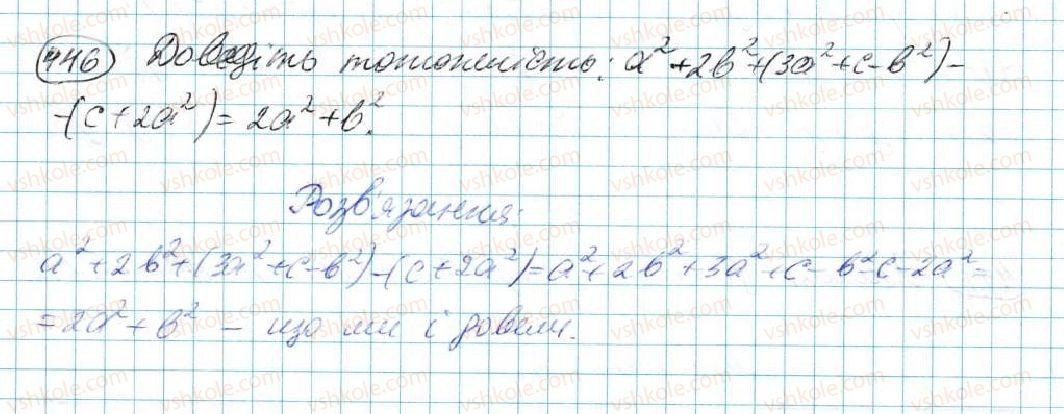 446 Доведіть тотожність: a²+2b²+(3a²+c-b²)-
-(c+2a²)=2a²+b².
Розв'язання:
a²+2b²+(3a²+c-b²)-(c+2a²)=a²+2b²+3a²+c-b²-c-2a²=
=2a²+b² - що ми і довели.